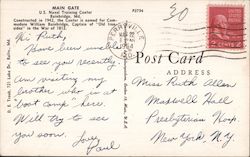 MAIN GATE
U.S. Naval Training Center
Bainbridge, Md.
Constructed in 1942, the Center is named for Commodore William Bainbridge, Captain of "Old Ironsides" in the War of 1812.
P2736
30
Post Card
ADDRESS
Hi Ruth,
Have been unable
to see you recently
Am visiting my
brother who is at
"boot camp" here.
Will try to see
you soon.
Love
Paul
Miss Ruth Allen
Maxwell Hall
Presbyterian Hosp.
New York, N.Y.
MAR 22
2 CENTS 2